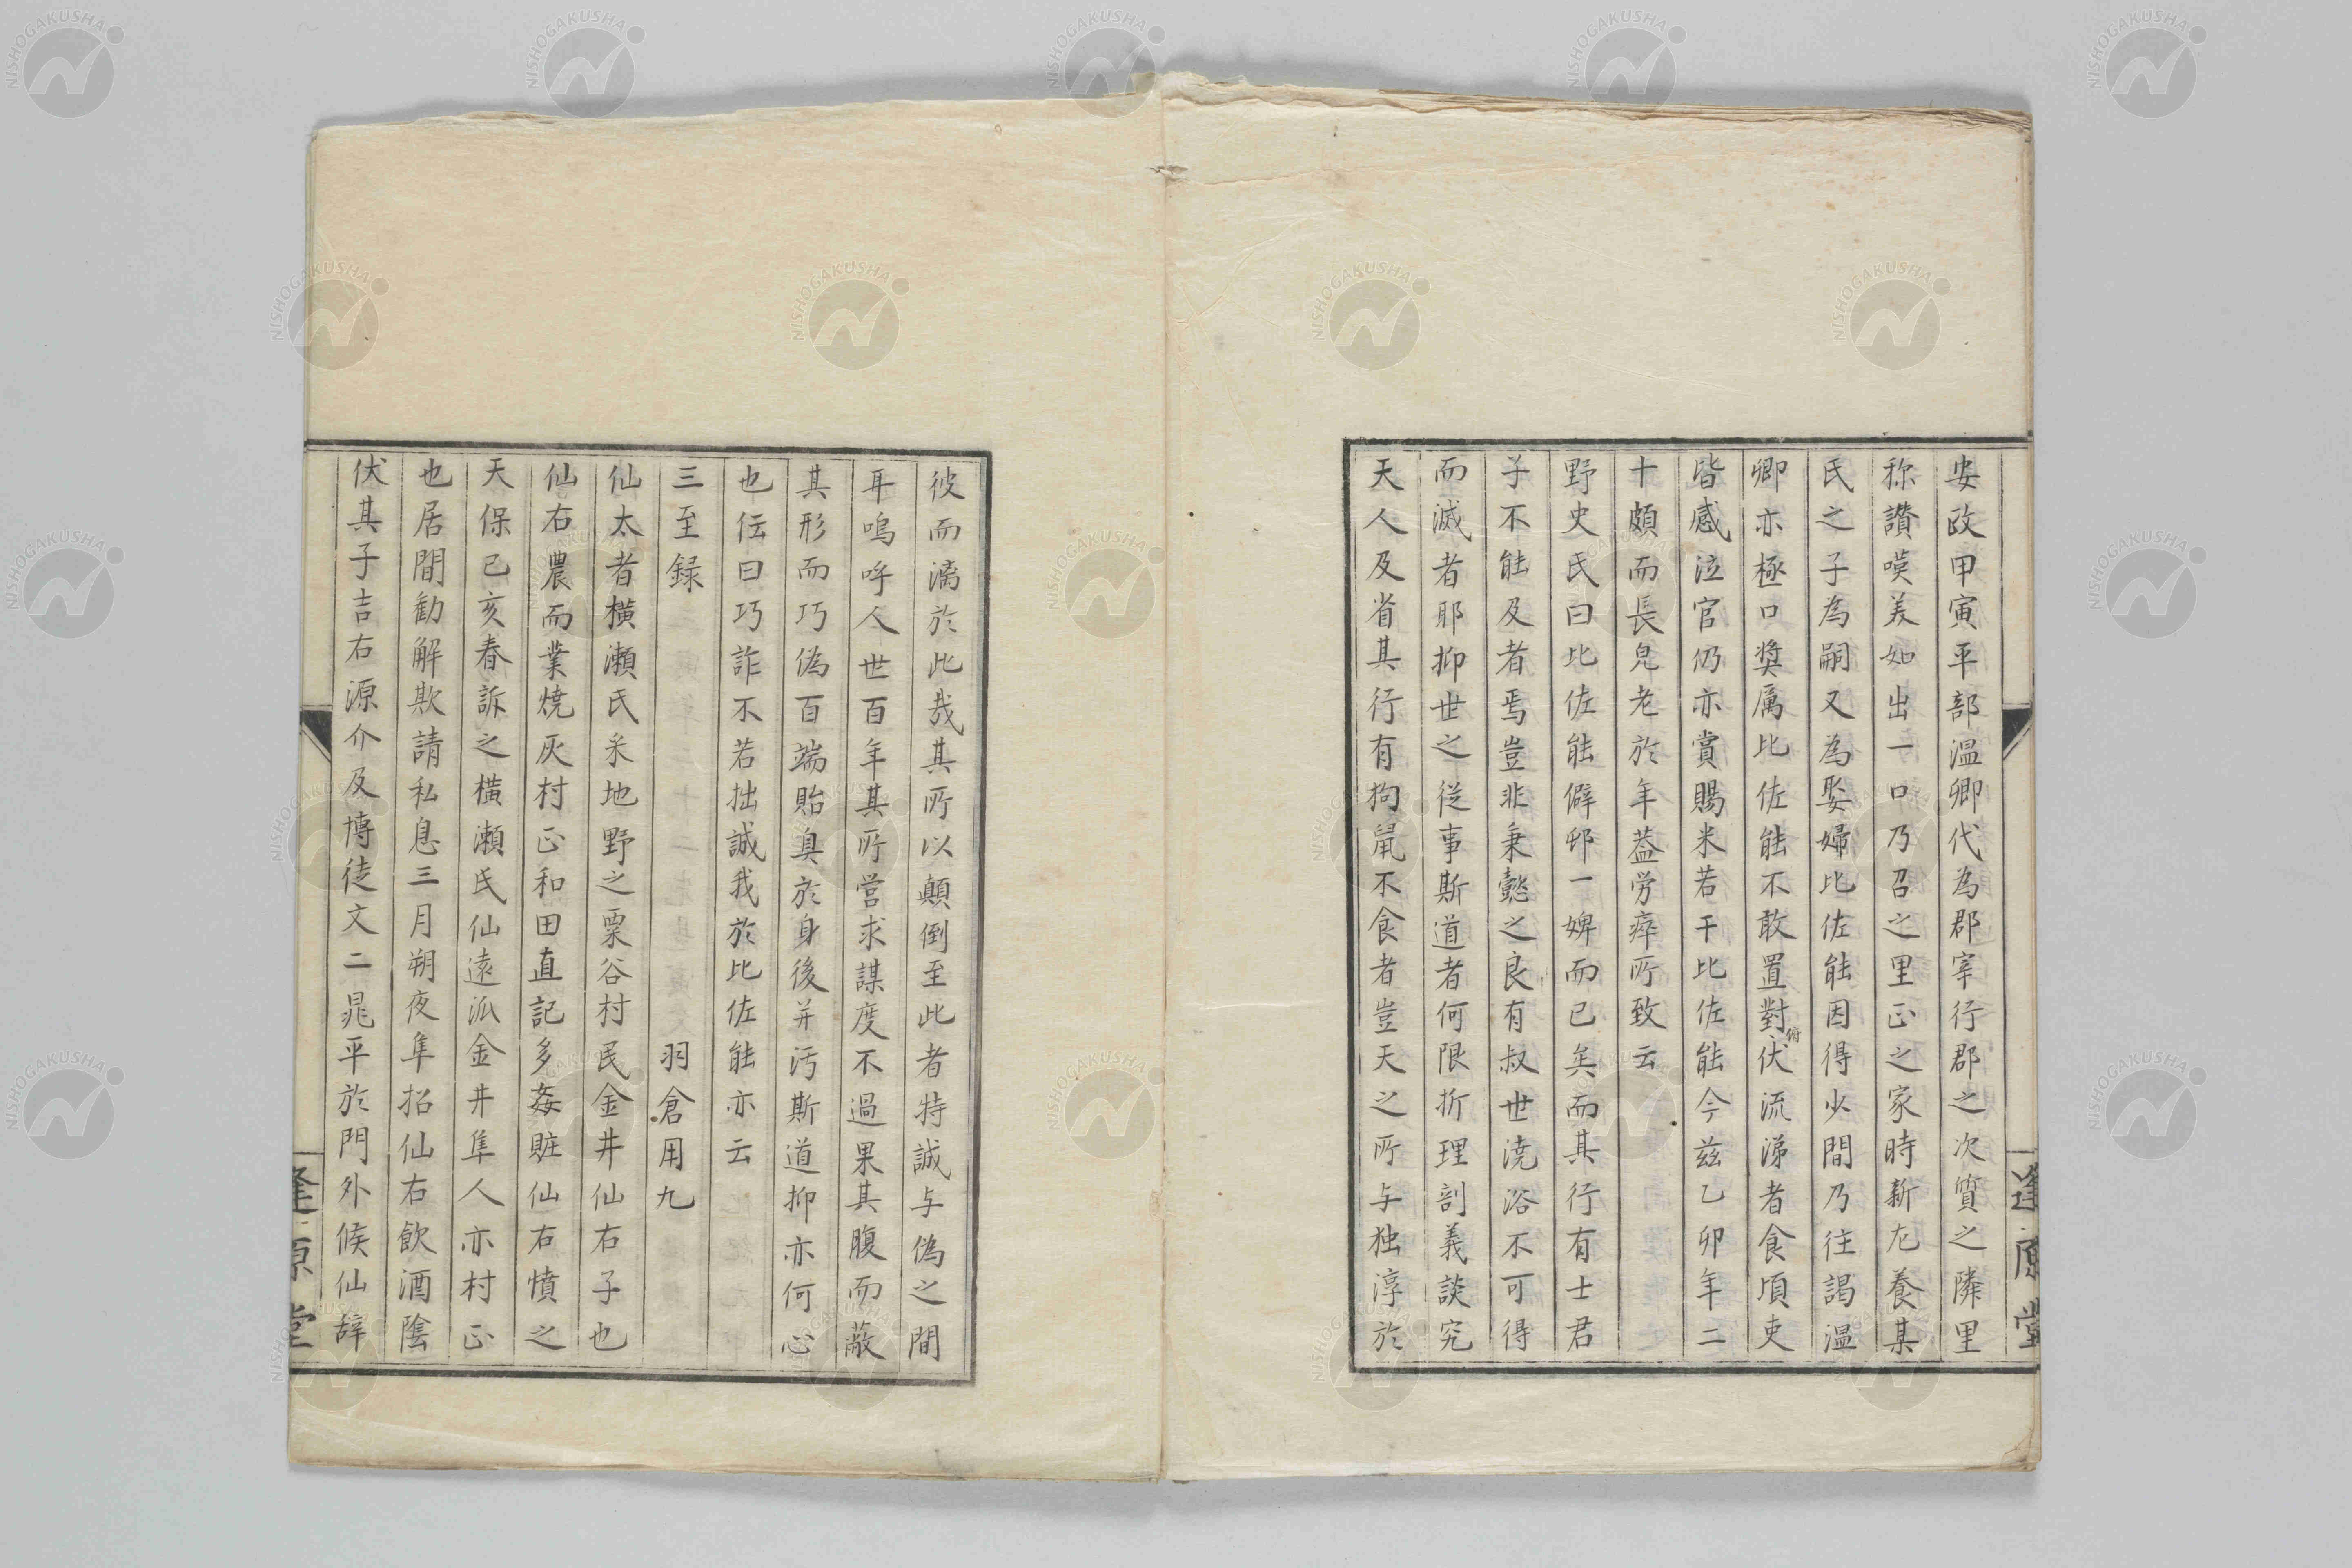 安政甲寅平部温卿代為郡宰行郡之次質之隣里
称讃嘆美如出一口乃召之里正之家時新尨養某
氏之子為嗣又為娶婦比佐能因得少間乃往謁温
卿亦極口奨属比佐能不敢置對俯伏流涕者食頃吏
皆感泣官仍亦賞賜米若干比佐能今玆乙卯年二
十頗而長皃老於年葢労瘁所致云
野史氏曰比佐能僻邨一婢而已矣而其行有士君
子不能及者焉豈非秉懿之良有叔世澆浴不可得
而滅者耶抑世之従事斯道者何限折理剖義談究
天人及省其行有狗鼠不食者豈天之所与独淳於
彼而漓於此哉其所以顛倒至此者特誠与偽之間
耳嗚呼人世百年其所営求謀度不過果其腹而蔽
其形而巧偽百端貽臭於身後并汚斯道抑亦何心
也伝曰巧詐不若拙誠我於比佐能亦云
三至録 羽倉用九
仙太者横瀬氏釆地野之粟谷村民金井仙右子也
仙右農而業焼灰村正和田直記多姦賍仙右憤之
天保己亥春訴之横瀬氏仙遠派金井隼人亦村正
也居間勧解欺請私息三月朔夜隼招仙右飲酒陰
伏其子吉右源介及博徒文二晁平於門外候仙辞
逢原堂
逢原堂
NISHOGAKUSHA